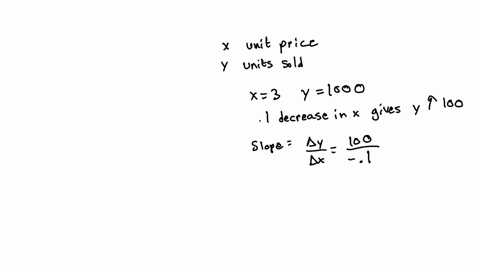 x unit price
y units sold
x=3 y=1000
.1 decrease in x gives y ↑ 100
Slope = Δy/Δx = 100/-.1